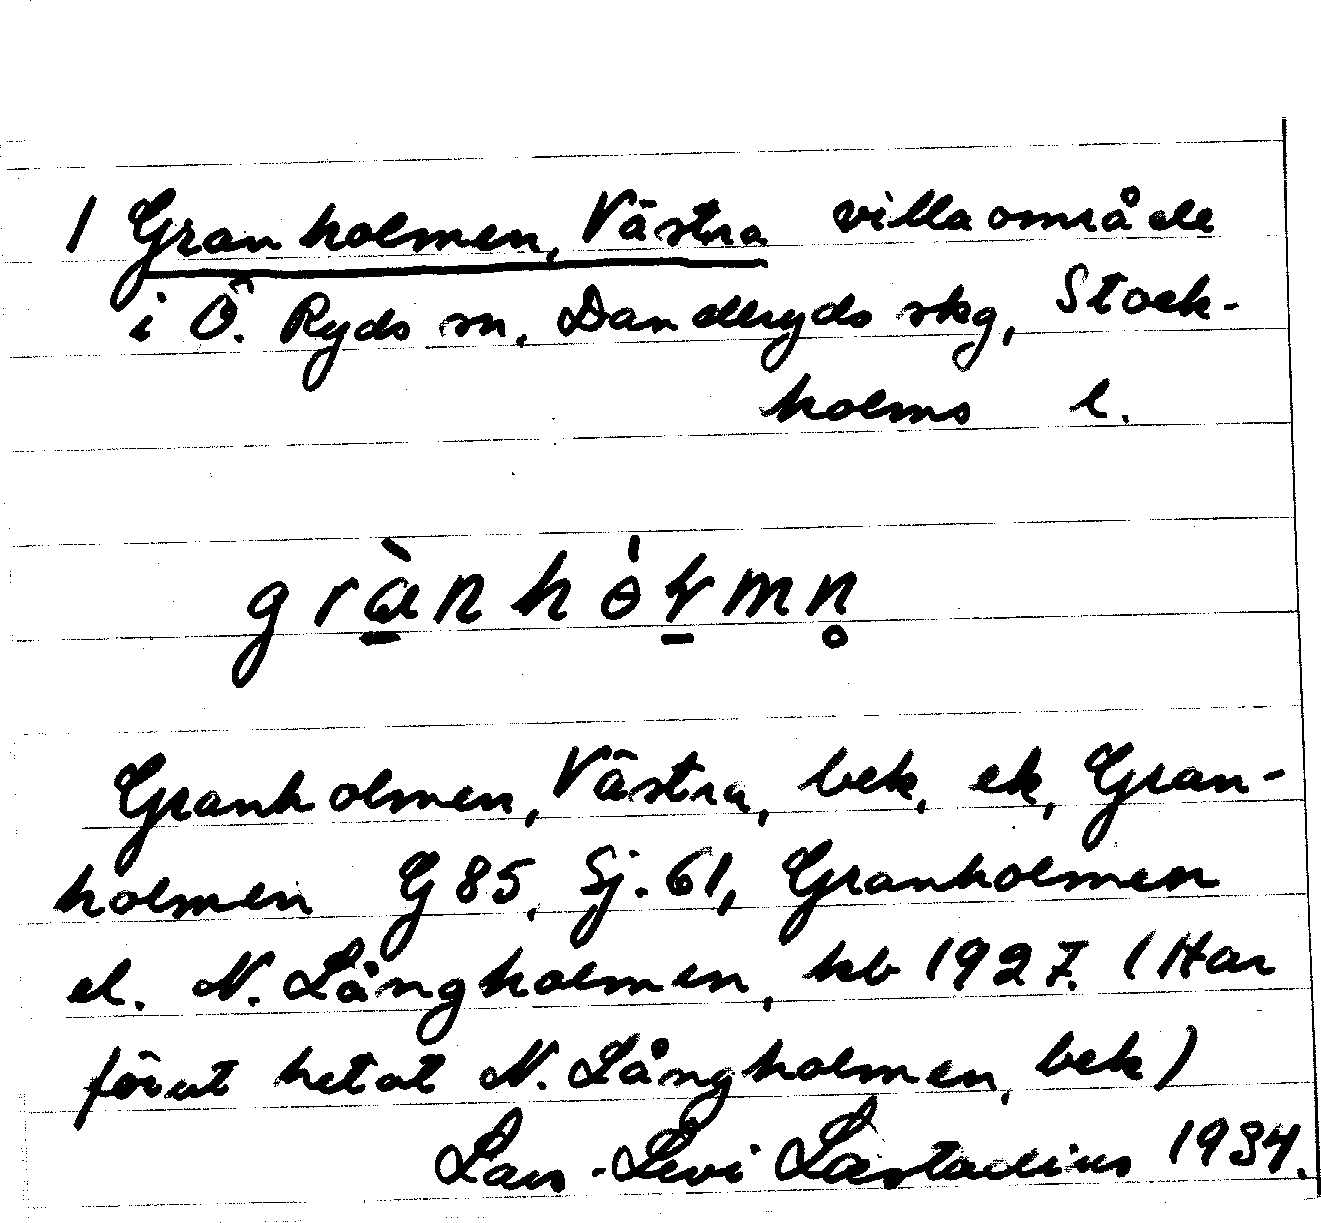 1 Granholmen, Västra villaområde
i Ö. Ryds sn. Danderyds skg, Stock-
holms l.
grànhólmn̥
Granholmen, Västra, bek, ek, Gran-
holmen G 85, Sj. 61, Granholmen
el. N. Långholmen, kb 1927. (Har
förut hetat N. Långholmen, bek)
Lars-Levi Læstadius 1934.